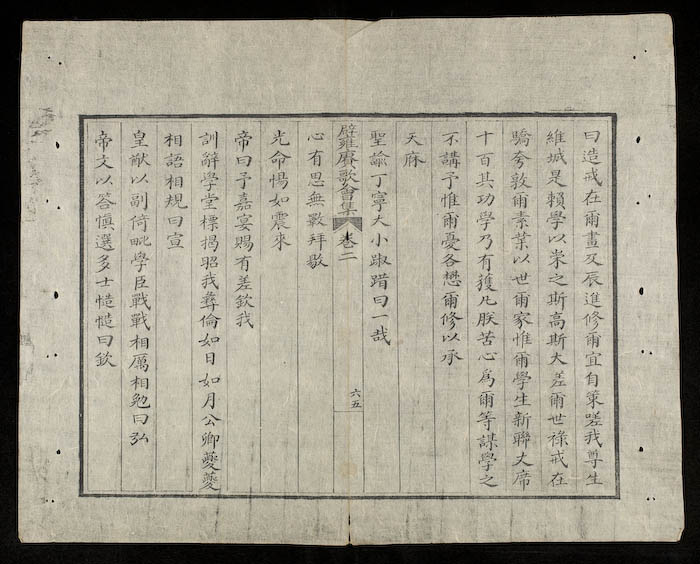 曰造戒在爾晝及辰進修爾宜自策嗟我尊生
維城是賴學以崇之斯高斯大差爾世祿戒在
驕夸敦爾素業以世爾家惟爾學生新聯大席
十百其功學乃有獲凡朕苦心為爾等謀學之
不講予惟爾憂各懋爾修以承
天庥
聖諭丁寧大小踧踖曰一哉
辟雍賡歌會集 卷二
六五
心有思無斁拜敭
光命惕如震來
帝曰予嘉宴賜有差欽我
訓辭學堂標揭昭我彝倫如日如月公卿夔夔
相語相規曰宣
皇猷以副倚毗學臣戰戰相厲相勉曰弘
帝文以答慎選多士慥慥曰欽